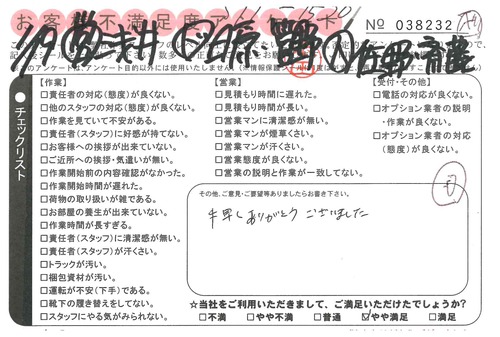 お客様不満足度アンケート
No 038232
チェックリスト
【作業】
□責任者の対応(態度)が良くない。
□他のスタッフの対応(態度)が良くない。
□作業を見ていて不安がある。
□責任者(スタッフ)に好感が持てない。
□お客様への挨拶が出来ていない。
□ご近所への挨拶・気遣いが無い。
□作業開始前の内容確認がなかった。
□作業開始時間が遅れた。
□荷物の取り扱いが雑である。
□お部屋の養生が出来ていない。
□作業時間が長すぎる。
□責任者(スタッフ)に清潔感が無い。
□責任者(スタッフ)が汗くさい。
□トラックが汚い。
□梱包資材が汚い。
□運転が不安(下手)である。
□靴下の履き替えをしてない。
□スタッフにやる気がみられない。
【営業】
□見積もり時間に遅れた。
□見積もり時間が長い。
□営業マンに清潔感が無い。
□営業マンが煙草くさい。
□営業マンが汗くさい。
□営業態度が良くない。
□営業の説明と作業が一致してない。
【受付・その他】
□電話の対応が良くない。
□オプション業者の説明
・作業が良くない。
□オプション業者の対応
(態度)が良くない。
その他、ご意見・ご要望等ありましたらお書き下さい。
手早くありがとうございました
☆当社をご利用いただきまして、ご満足いただけたでしょうか?
□不満 □やや不満 □普通 ☑やや満足 □満足